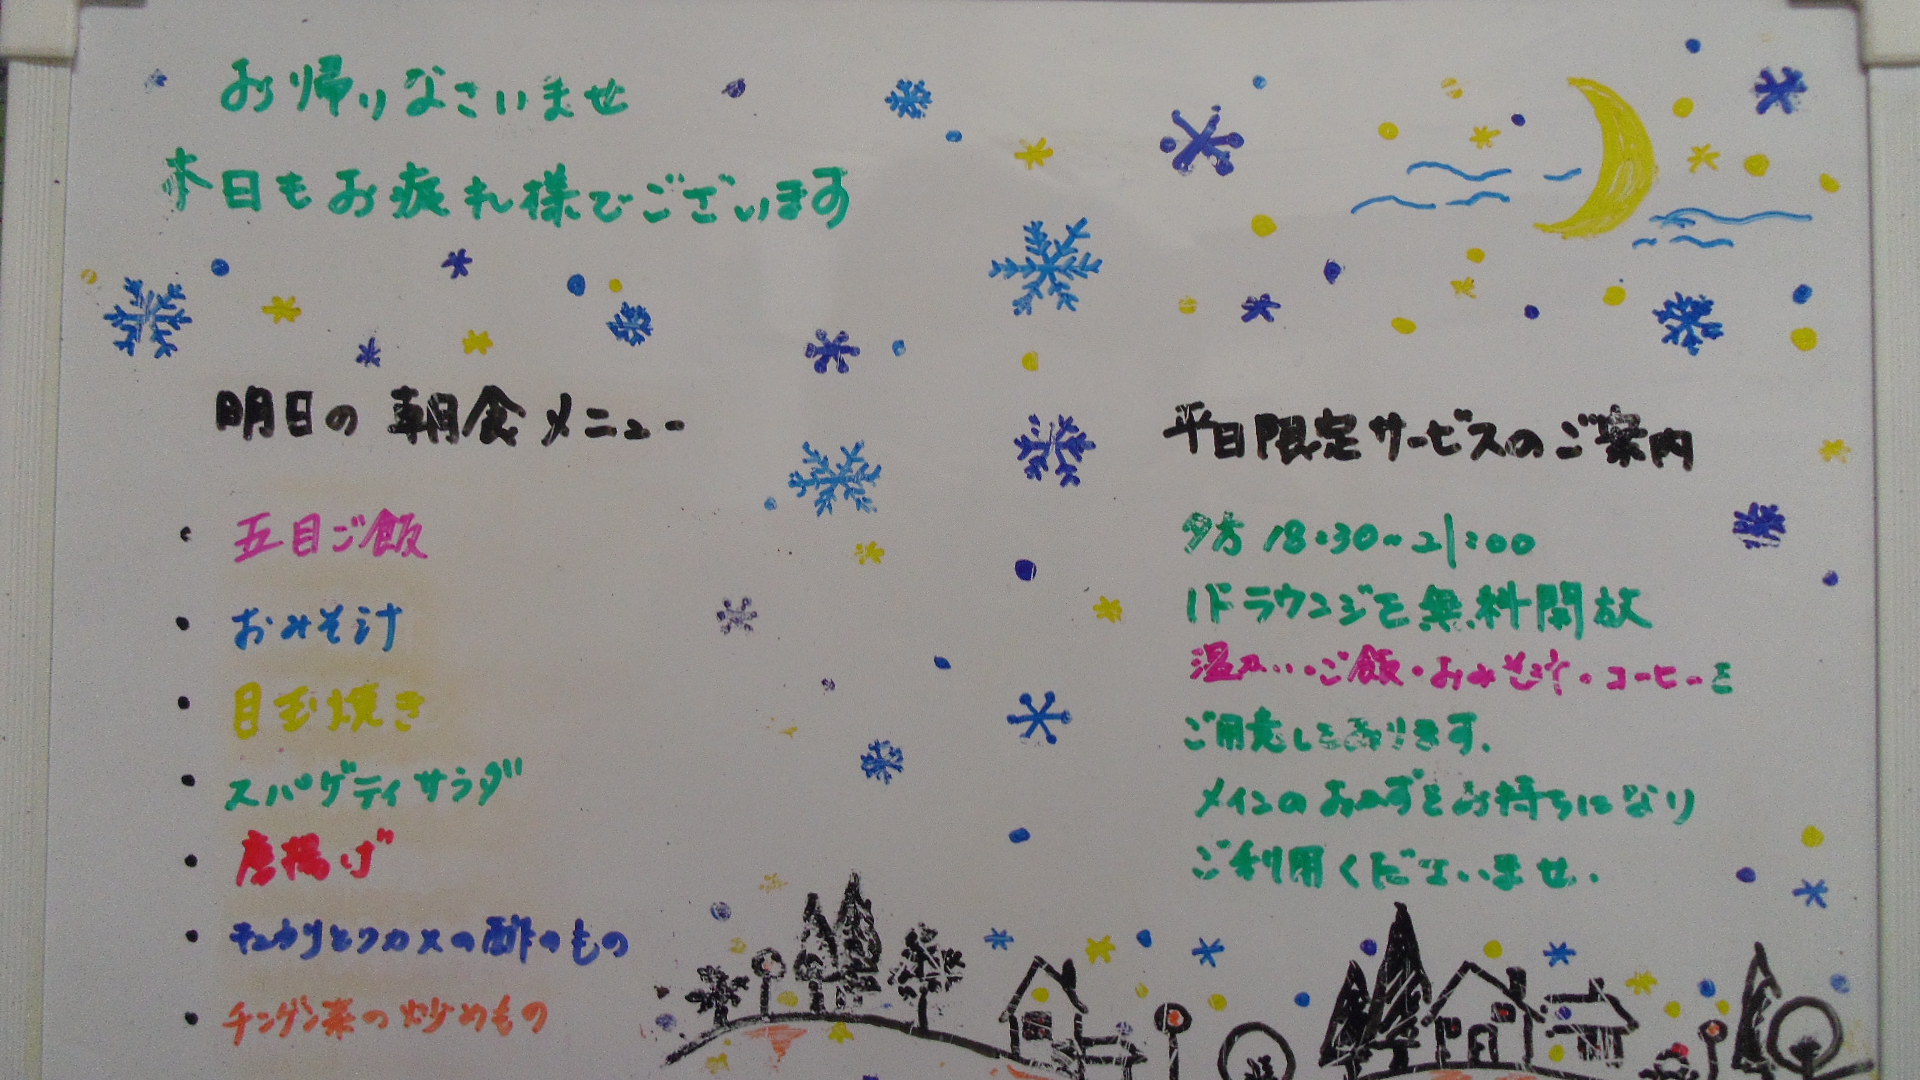 お帰りなさいませ
本日もお疲れ様でございます
明日の朝食メニュー
・五目ご飯
・おみそ汁
・目玉焼き
・スパゲティサラダ
・唐揚げ
・キュウリとワカメの酢のもの
・チンゲン菜の炒めもの
平日限定サービスのご案内
夕方 18:30~21:00
1Fラウンジを無料開放
温かいご飯・おみそ汁・コーヒーを
ご用意しております。
メインのおかずをお持ちになり
ご利用くださいませ.